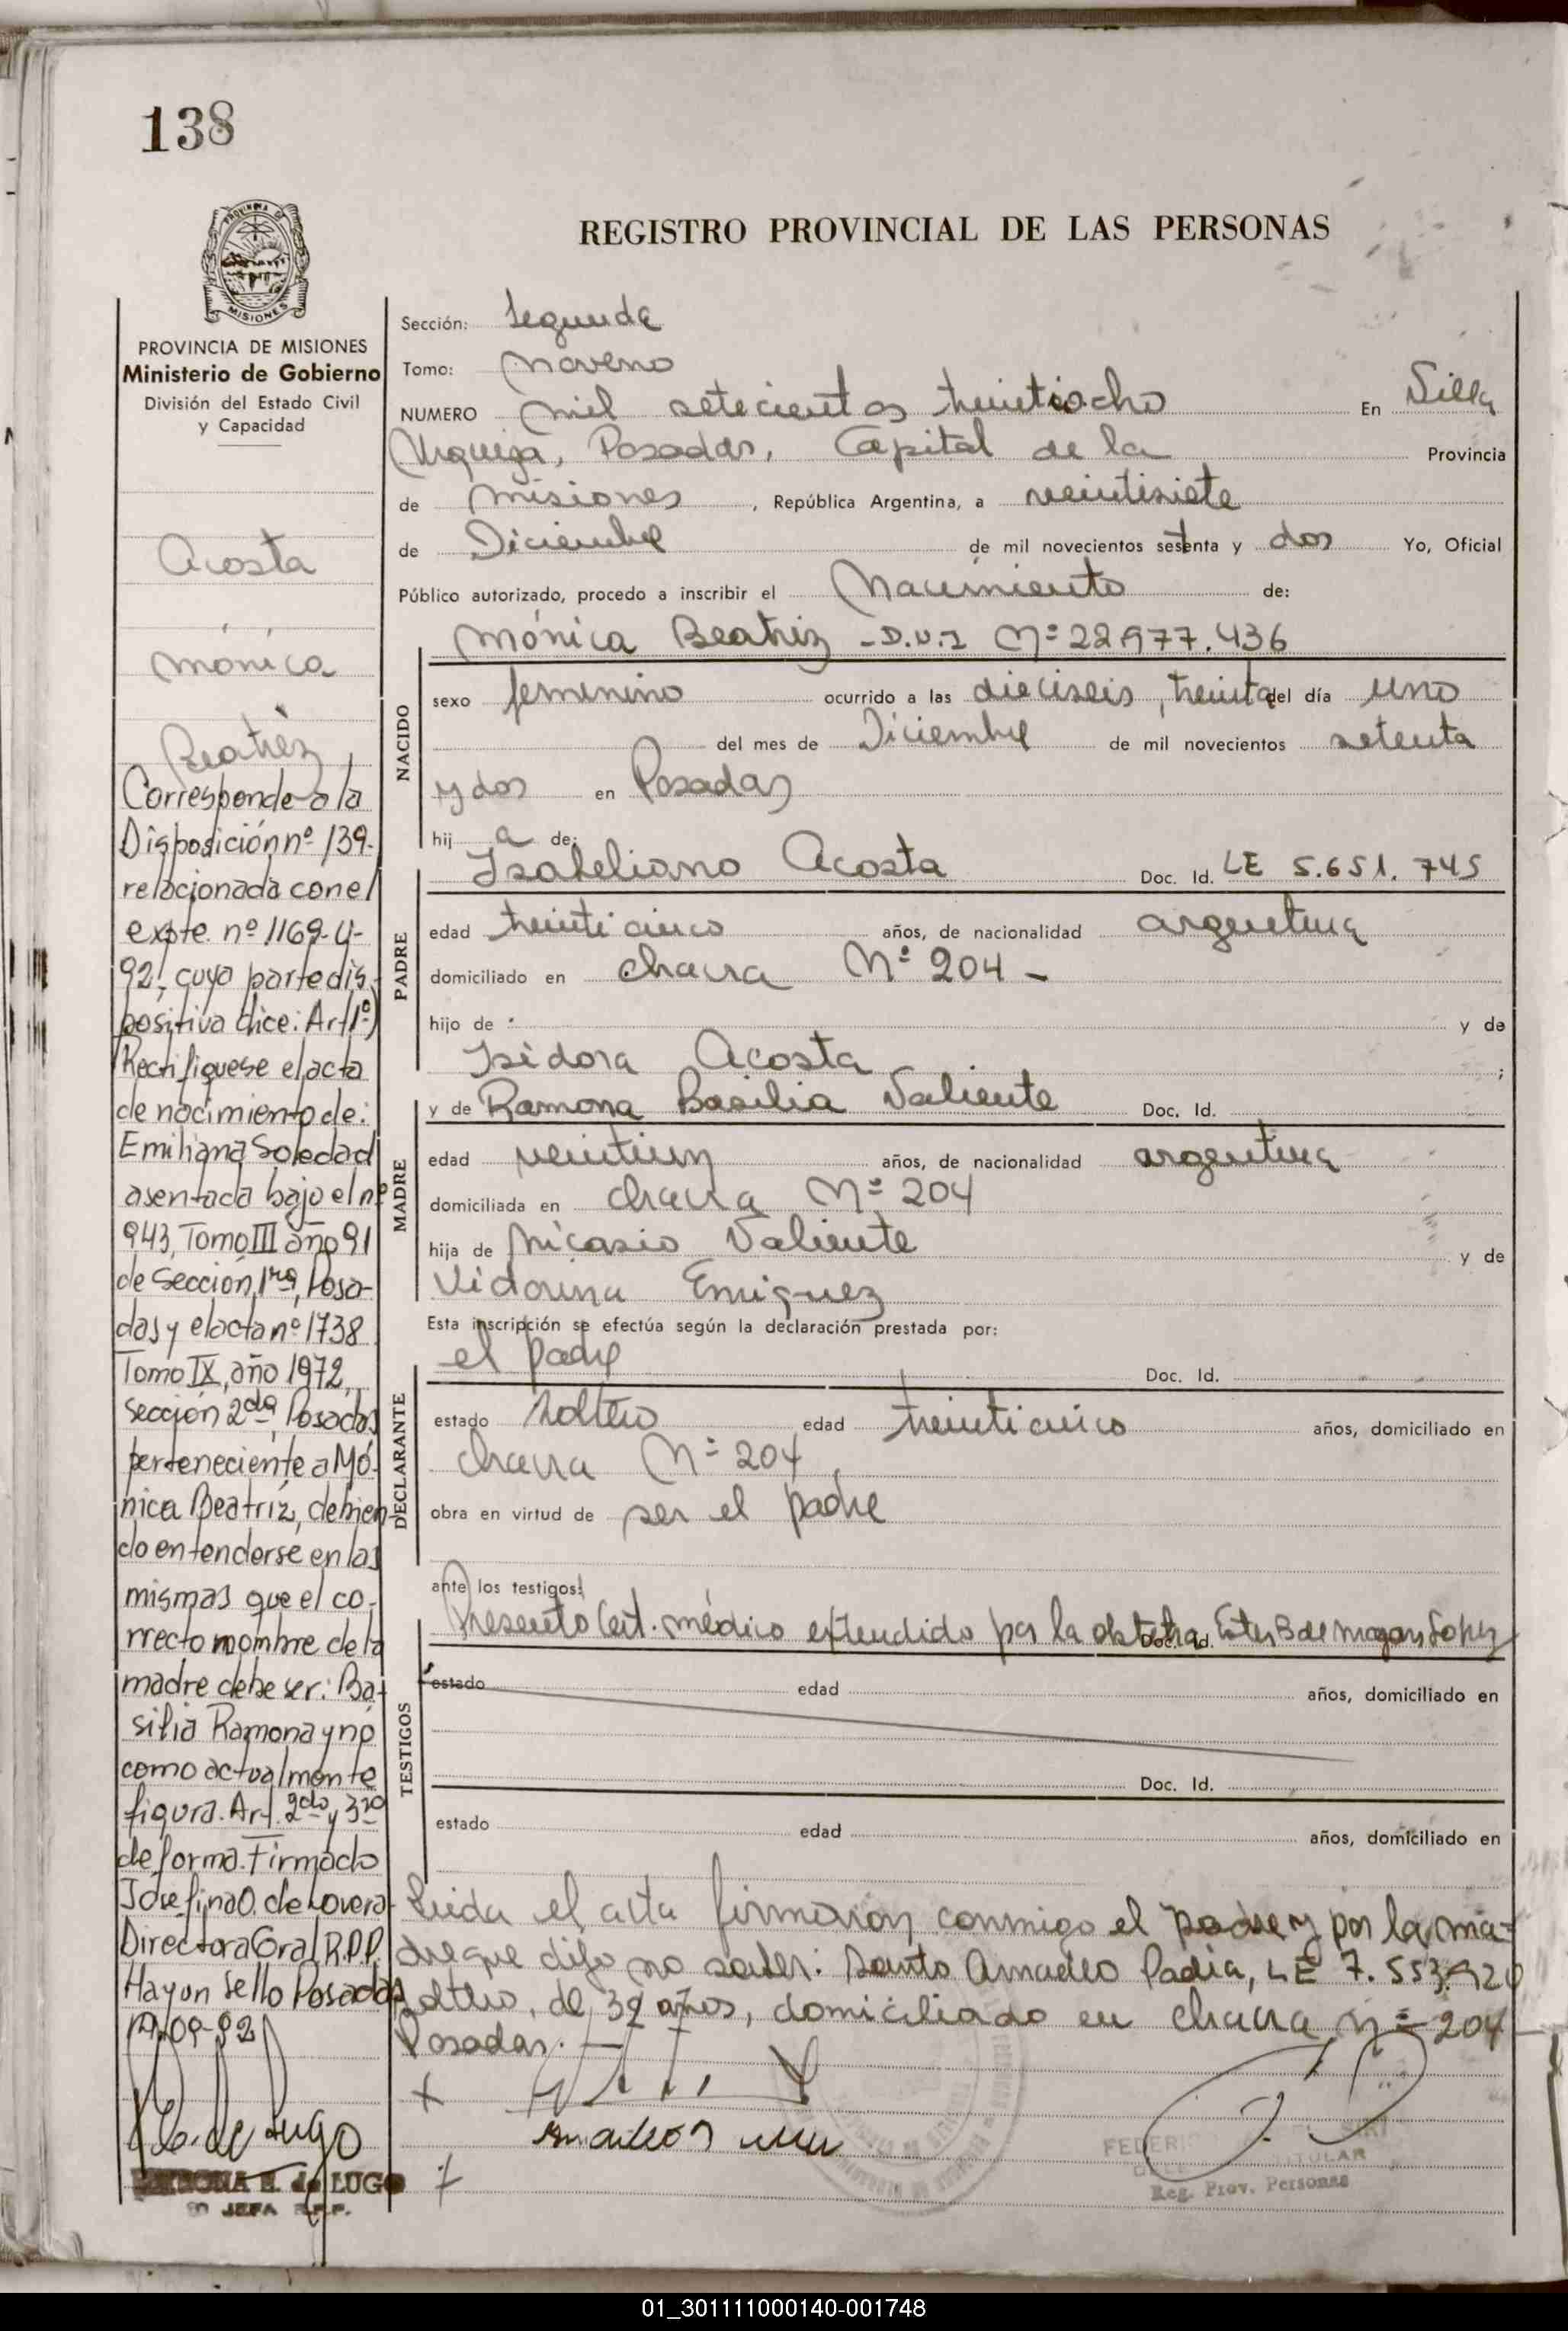 138
PROVINCIA DE
MISIONES
REGISTRO PROVINCIAL DE LAS PERSONAS
PROVINCIA DE MISIONES
Ministerio de Gobierno
División del Estado Civil
y Capacidad
Acosta
Mónica
Beatriz
Corresponde a la
Disposición nº 139-
relacionada con el
expte. nº 1169-U-
92, cuya parte dis-
positiva dice: Art 1º)
Rectifiquese el acta
de nacimiento de:
Emiliana Soledad
asentada bajo el nº
943, Tomo III año 91
de Sección 1ra, Posa-
das y el acta nº 1738
Tomo IX, año 1972,
Sección 2da Posadas
perteneciente a Mó-
nica Beatriz, debien-
do entenderse en las
mismas que el co-
rrecto nombre de la
madre debe ser: Ba-
silia Ramona y no
como actualmente
figura. Art. 2do y 3ro
de forma. Firmado
Josefina O. de Lovera
Directora Gral R.P.P.
Hay un sello Posadas
09-92
de Lugo
de LUGO
JEFA R.P.P.
Sección: Segunda
Tomo: Noveno
NUMERO mil setecientos treintiocho En Villa
Urquiza, Posadas, Capital de la Provincia
de Misiones, República Argentina, a veintisiete
de Diciembre de mil novecientos setenta y dos Yo, Oficial
Público autorizado, procedo a inscribir el Nacimiento de:
Mónica Beatriz - D.N.I Nº 22.977.436
NACIDO
sexo femenino ocurrido a las dieciseis, treinta del día uno
del mes de Diciembre de mil novecientos setenta
y dos en Posadas
hij a de:
Isabeliano Acosta Doc. Id. LE 5.651.745
PADRE
edad treinticinco años, de nacionalidad argentina
domiciliado en chacra Nº 204 -
hijo de y de
Isidora Acosta ;
y de Ramona Basilia Valiente Doc. Id.
MADRE
edad veintiun años, de nacionalidad argentina
domiciliada en chacra Nº 204
hija de Nicasio Valiente y de
Vidorina Enriquez
Esta inscripción se efectúa según la declaración prestada por:
el padre Doc. Id.
DECLARANTE
estado soltero edad treinticinco años, domiciliado en
chacra Nº 204,
obra en virtud de ser el padre
ante los testigos:
Presentó Cert. médico extendido por la obstetra Doc. Id. Ester B de
TESTIGOS
estado edad años, domiciliado en
Doc. Id.
estado edad años, domiciliado en
Leida el acta firmaron conmigo el padre y por la ma-
dre que dijo no saber: Santo Amadeo Padia, LE 7.553.920
soltero, de 32 años, domiciliado en chacra nº 204
Posadas. -
FEDERI
TITULAR
Reg. Prov. Personas
01_301111000140-001748